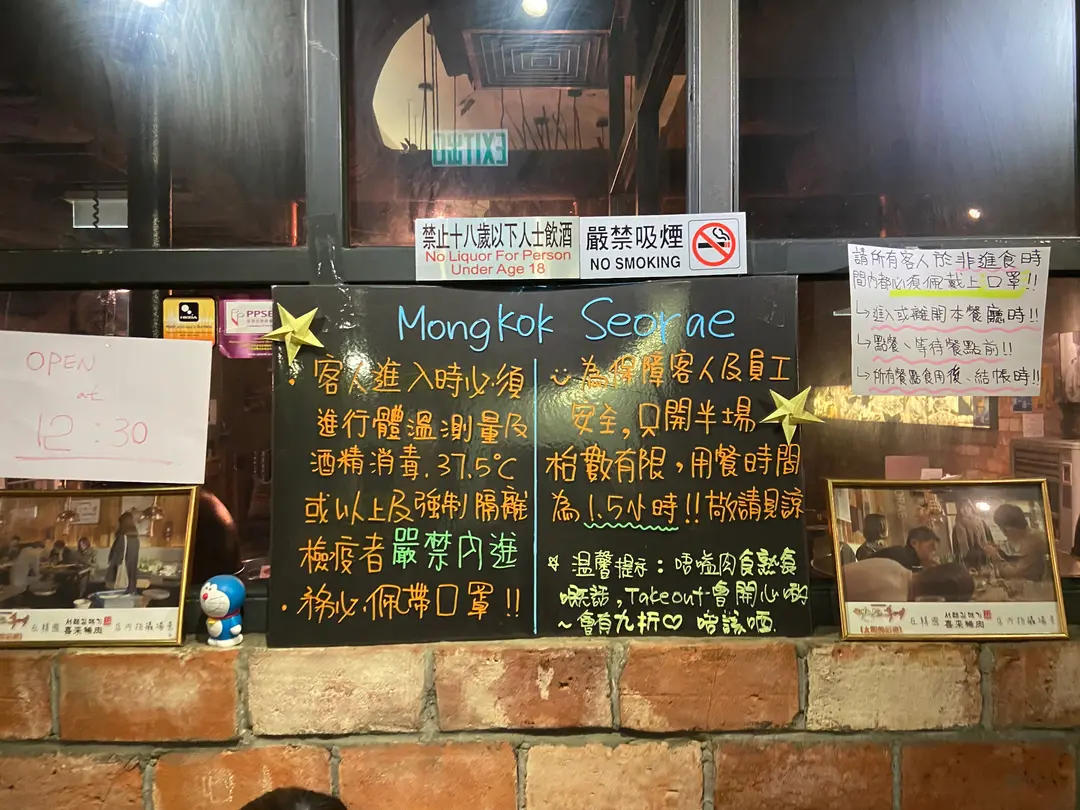 EXIT出口
禁止十八歲以下人士飲酒
No Liquor For Person
Under Age 18
嚴禁吸煙
NO SMOKING
請所有客人於非進食時
間內都必須佩戴上口罩!!
↳進入或離開本餐廳時!!
↳點餐、等待餐點前!!
↳所有餐點食用後、結帳時!!
PPSE
OPEN
at
12:30
Mongkok Seorae
・客人進入時必須
進行體溫測量及
酒精消毒.37.5℃
或以上及強制隔離
檢疫者嚴禁內進
・務必佩帶口罩!!
為保障客人及員工
安全,只開半場
枱數有限,用餐時間
為1.5小時!!敬請見諒
☆溫馨提示:唔嗌肉食熟食
嘅話,Takeout會開心啲
~會有九折♡ 唔該晒.
서래갈매기
喜來稀肉
店內拍攝場景
서래갈매기
喜來稀肉
店內拍攝場景